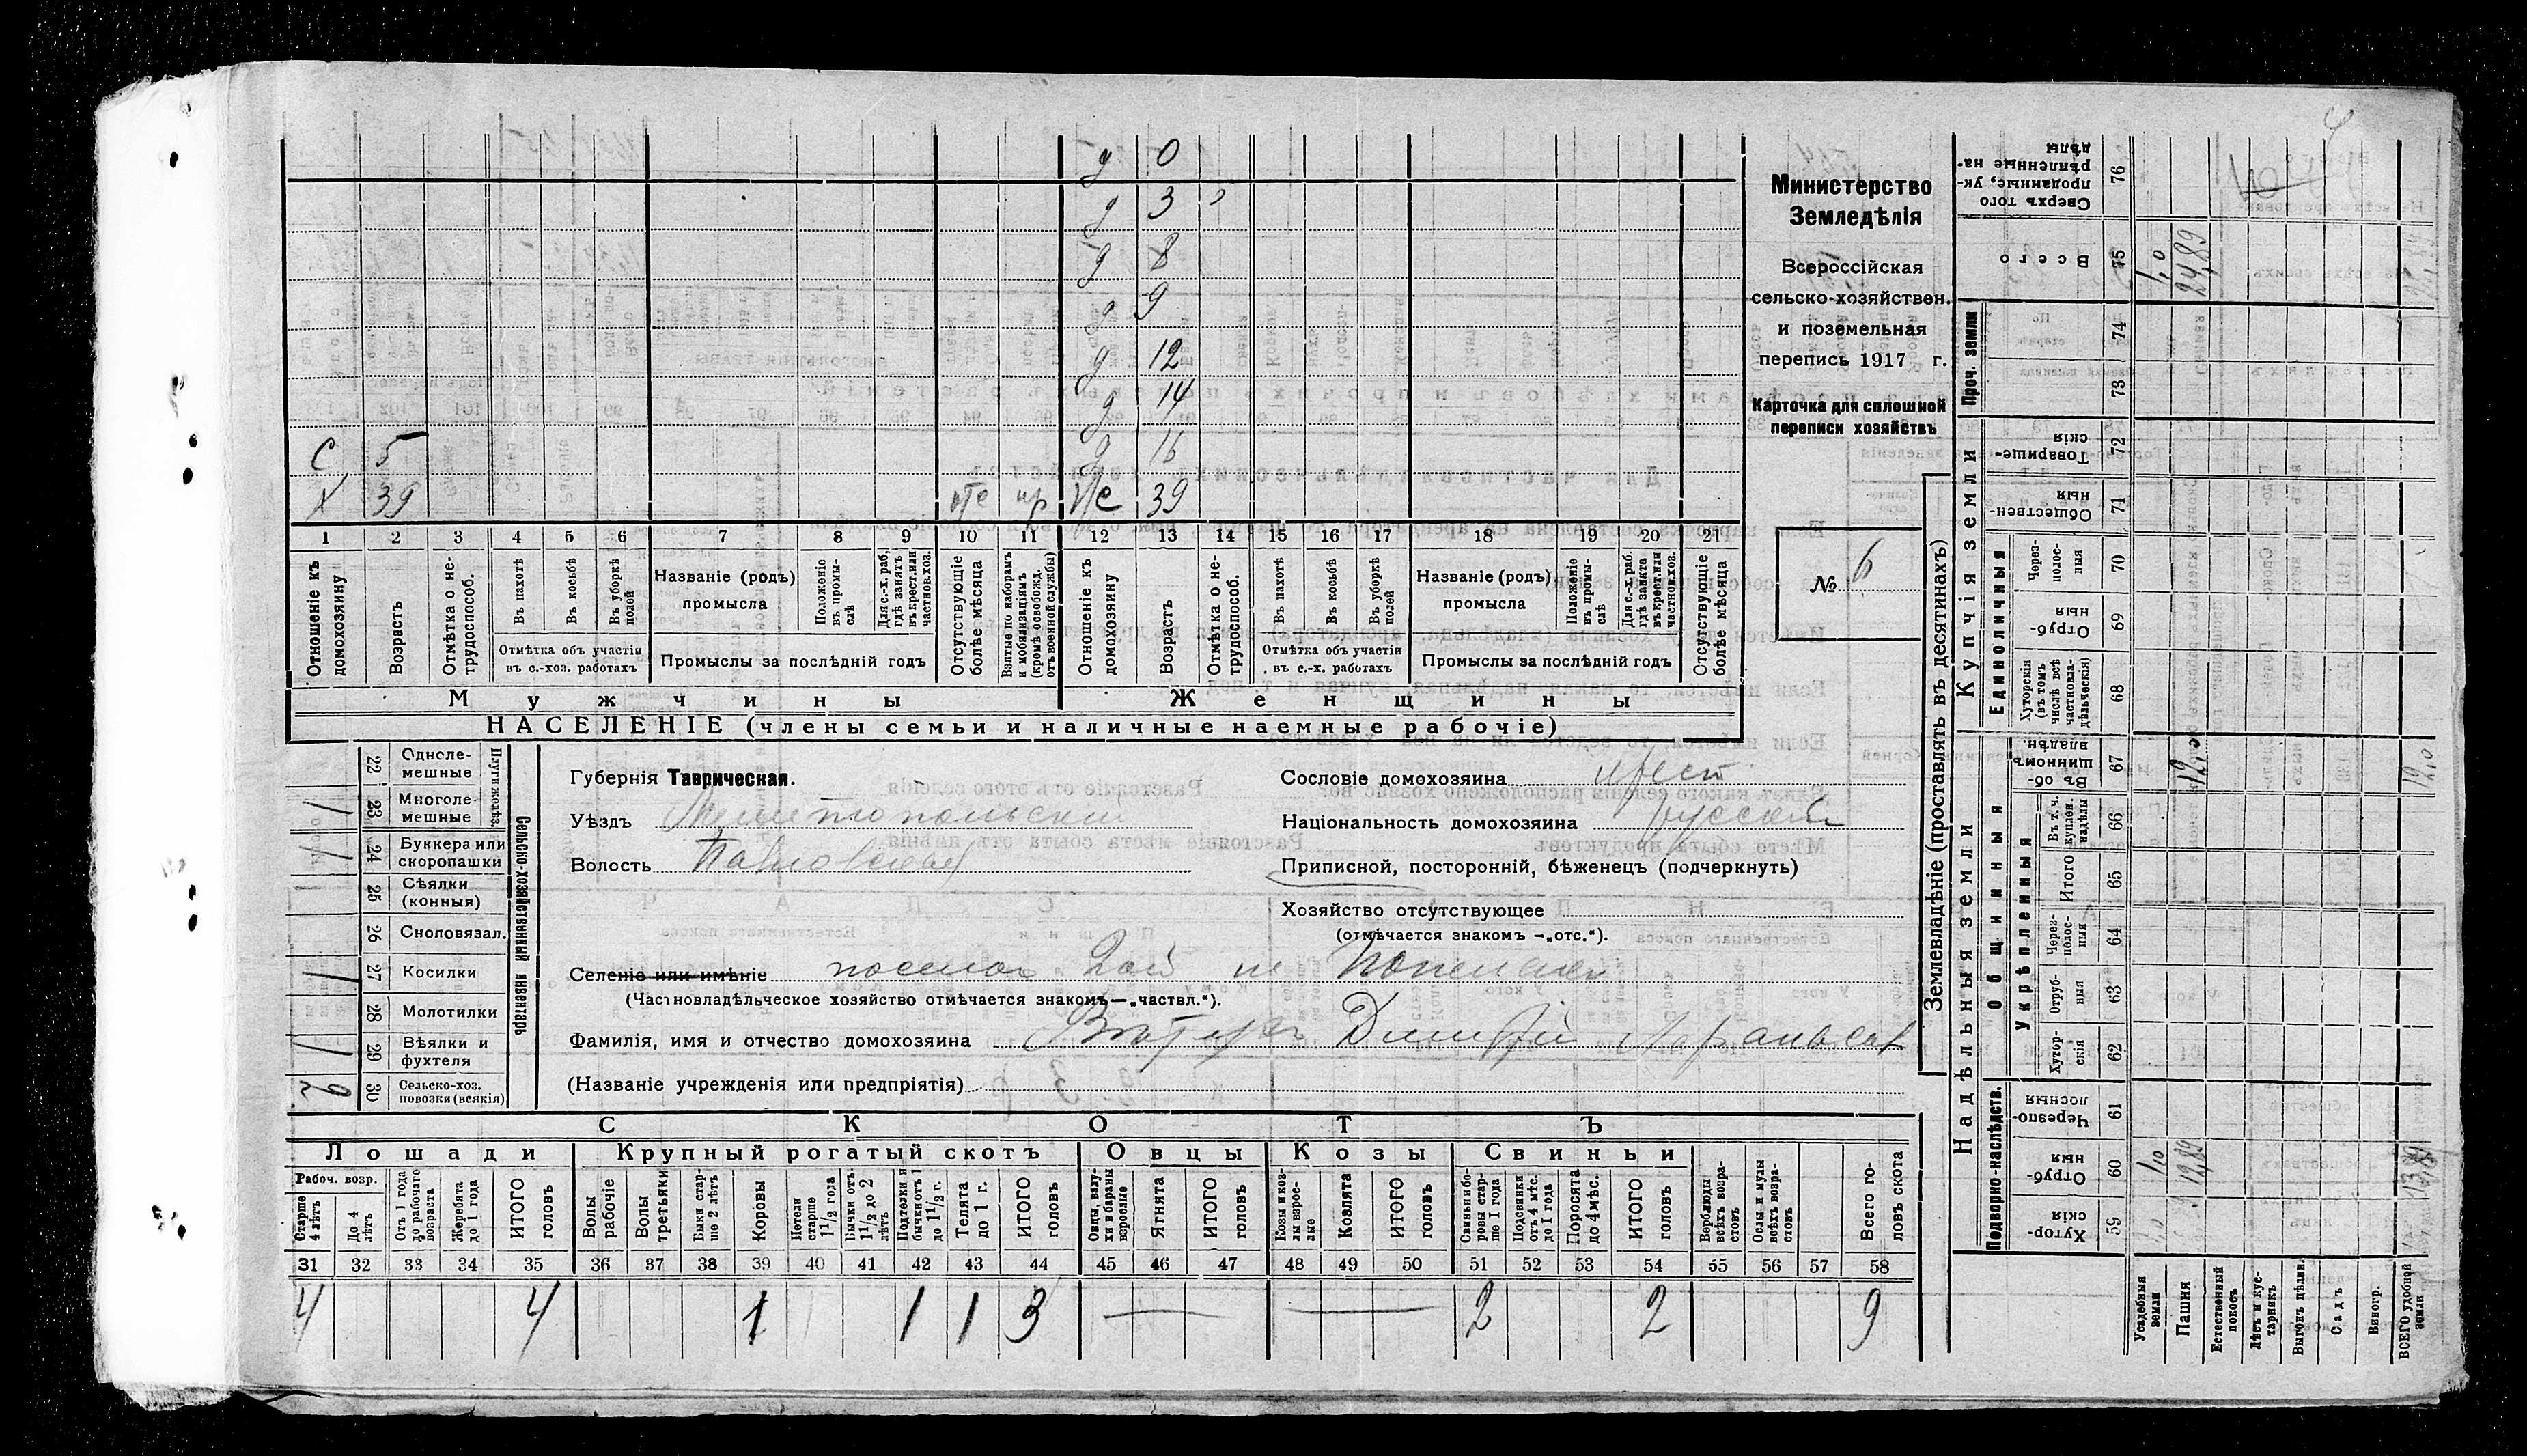 Министерство
Земледѣлія
Всероссійская
сельско-хозяйствен.
и поземельная
перепись 1917 г.
Карточка для сплошной
переписи хозяйствъ
№ 6
д 0
д 3
д 8
д 9
д 12
д 14
С 5 д 16
Х 39 39
1 2 3 4 5 6 7 8 9 10 11 12 13 14 15 16 17 18 19 20 21
Отношеніе къ домохозяину
Возрастъ
Отмѣтка о не-трудоспособ.
Въ пахотѣ
Въ косьбѣ
Въ уборкѣ полей
Отмѣтка объ участіи въ с.-хоз. работахъ
Названіе (родъ) промысла
Положеніе въ промы-слѣ
Для с.-х. раб. гдѣ занятъ въ крест. или частнов. хоз.
Промыслы за послѣдній годъ
Отсутствующіе болѣе мѣсяца
Взятые по наборамъ и мобилизаціямъ (кромѣ освобожд. отъ военной службы)
Отношеніе къ домохозяину
Возрастъ
Отмѣтка о не-трудоспособ.
Въ пахотѣ
Въ косьбѣ
Въ уборкѣ полей
Отмѣтка объ участіи въ с.-х. работахъ
Названіе (родъ) промысла
Положеніе въ промы-слѣ
Для с.-х. раб. гдѣ занята въ крест. или частнов. хоз.
Промыслы за послѣдній годъ
Отсутствующіе болѣе мѣсяца
Мужчины Женщины
НАСЕЛЕНІЕ (члены семьи и наличные наемные рабочіе)
Сельско-хозяйственный инвентарь
Плуги желѣз.
22 Однолемешные
23 Многолемешные 1
24 Буккера или скоропашки 1
25 Сѣялки (конныя)
26 Сноповязал.
27 Косилки 1
28 Молотилки
29 Вѣялки и фухтеля 1
30 Сельско-хоз. повозки (всякія) 2
Губернія Таврическая.
Уѣздъ Мелитопольскій
Волость Павловская
Сословіе домохозяина крест
Національность домохозяина русскій
Приписной, посторонній, бѣженецъ (подчеркнуть)
Хозяйство отсутствующее
(отмѣчается знакомъ —„отс.“).
Селеніе или имѣніе поселок
(Частновладѣльческое хозяйство отмѣчается знакомъ—„частвл.“).
Фамилія, имя и отчество домохозяина Дмитрій
(Названіе учрежденія или предпріятія)
СКОТЪ
Лошади Крупный рогатый скотъ Овцы Козы Свиньи
Рабоч. возр.
Старше 4 лѣтъ
До 4 лѣтъ
Отъ 1 года до рабочаго возраста
Жеребята до 1 года
ИТОГО головъ
Волы рабочіе
Волы третьяки
Быки стар-ше 2 лѣтъ
Коровы
Нетели старше 1 1/2 года
Бычки отъ 1 1/2 до 2 лѣтъ
Подтелки и бычки отъ 1 до 1 1/2 г.
Телята до 1 г.
ИТОГО головъ
Овцы, валу-хи и бараны взрослые
Ягнята
ИТОГО головъ
Козы и коз-лы взрос-лые
Козлята
ИТОГО головъ
Свиньи и бо-ровы стар-ше 1 года
Подсвинки отъ 4 мѣс. до 1 года
Поросята до 4 мѣс.
ИТОГО головъ
Верблюды всѣхъ возра-стовъ
Ослы и мулы всѣхъ возра-стовъ
Всего го-ловъ скота
31 32 33 34 35 36 37 38 39 40 41 42 43 44 45 46 47 48 49 50 51 52 53 54 55 56 57 58
4 4 1 1 1 3 — — 2 2 9
Землевладѣніе (проставлять въ десятинахъ)
Надѣльныя земли
Купчія земли
Проч. земли
Подворно-наслѣдств.
Общинныя
Укрѣпленныя
Единоличныя
Хутор-скія 59
Отруб-ныя 60
Черезпо-лосныя 61
Хутор-скія 62
Отруб-ныя 63
Через-полос-ныя 64
Итого 65
Въ т. ч. куплен. надѣлы 66
Въ об-щинномъ владѣн. 67
Хуторскія (въ томъ числѣ всѣ частновла-дѣльческія) 68
Отруб-ныя 69
Через-полос-ныя 70
Обществен-ныя 71
Товарище-скія 72
73
74
Всего 75
Сверхъ того проданные, ук-рѣпленные на-дѣлы 76
Усадебныя земли
Пашня
Естественный покосъ
Лѣсъ и кус-тарникъ
Выгонъ дѣлив.
Садъ
Виногр.
ВСЕГО удобной земли
1,0
12,89
12,0
1,0
24,89